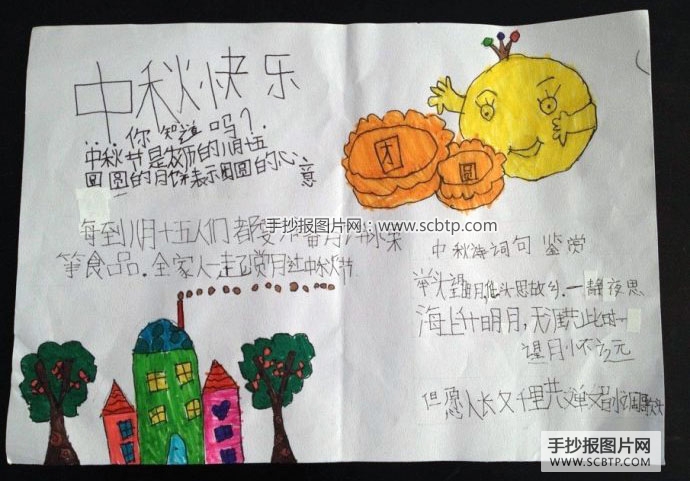 中秋快乐
你知道吗？
中秋节是农历的八月十五
圆圆的月饼表示圆圆的心意
每到八月十五人们都要
等食品.全家人一起赏月过中秋节
团
圆
中秋诗词句鉴赏
举头望明月,低头思故乡.一静夜思
海上升明月,天涯共此时一
望月怀远
但愿人长久千里共婵娟
手抄报图片网：www.scbtp.com
手抄报图片网
WWW.SCBTP.COM